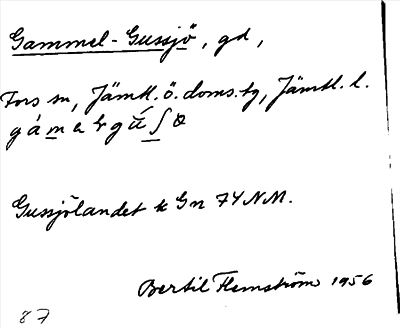 Gammel-Gussjö, gd,
Fors sn, Jämtl. ö. doms.tg, Jämtl. l.
Gussjölandet k Gn 74 NM.
Bertil Flemström 1956
87